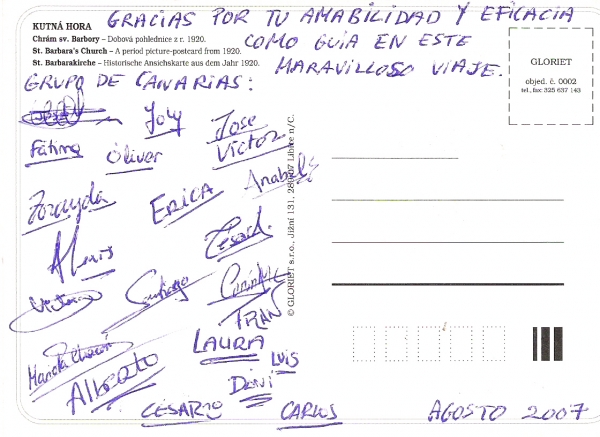 KUTNÁ HORA
Chrám sv. Barbory – Dobová pohlednice z r. 1920.
St. Barbara's Church – A period picture-postcard from 1920.
St. Barbarakirche – Historische Ansichskarte aus dem Jahr 1920.
GRACIAS POR TU AMABILIDAD Y EFICACIA
COMO GUIA EN ESTE
MARAVILLOSO VIAJE.
GLORIET
objed. č. 0002
tel., fax 325 637 143
GRUPO DE CANARIAS:
Joly
Jose
Victor
Fátima
Óliver
Anabel
Zorayda
ERICA
Alexis
Cesar
Victor
Santiago
FRAN
LAURA
LUIS
Alberto
DAVI
CÉSAR
CARLOS
AGOSTO 2007
© GLORIET s.r.o., Jižní 131,